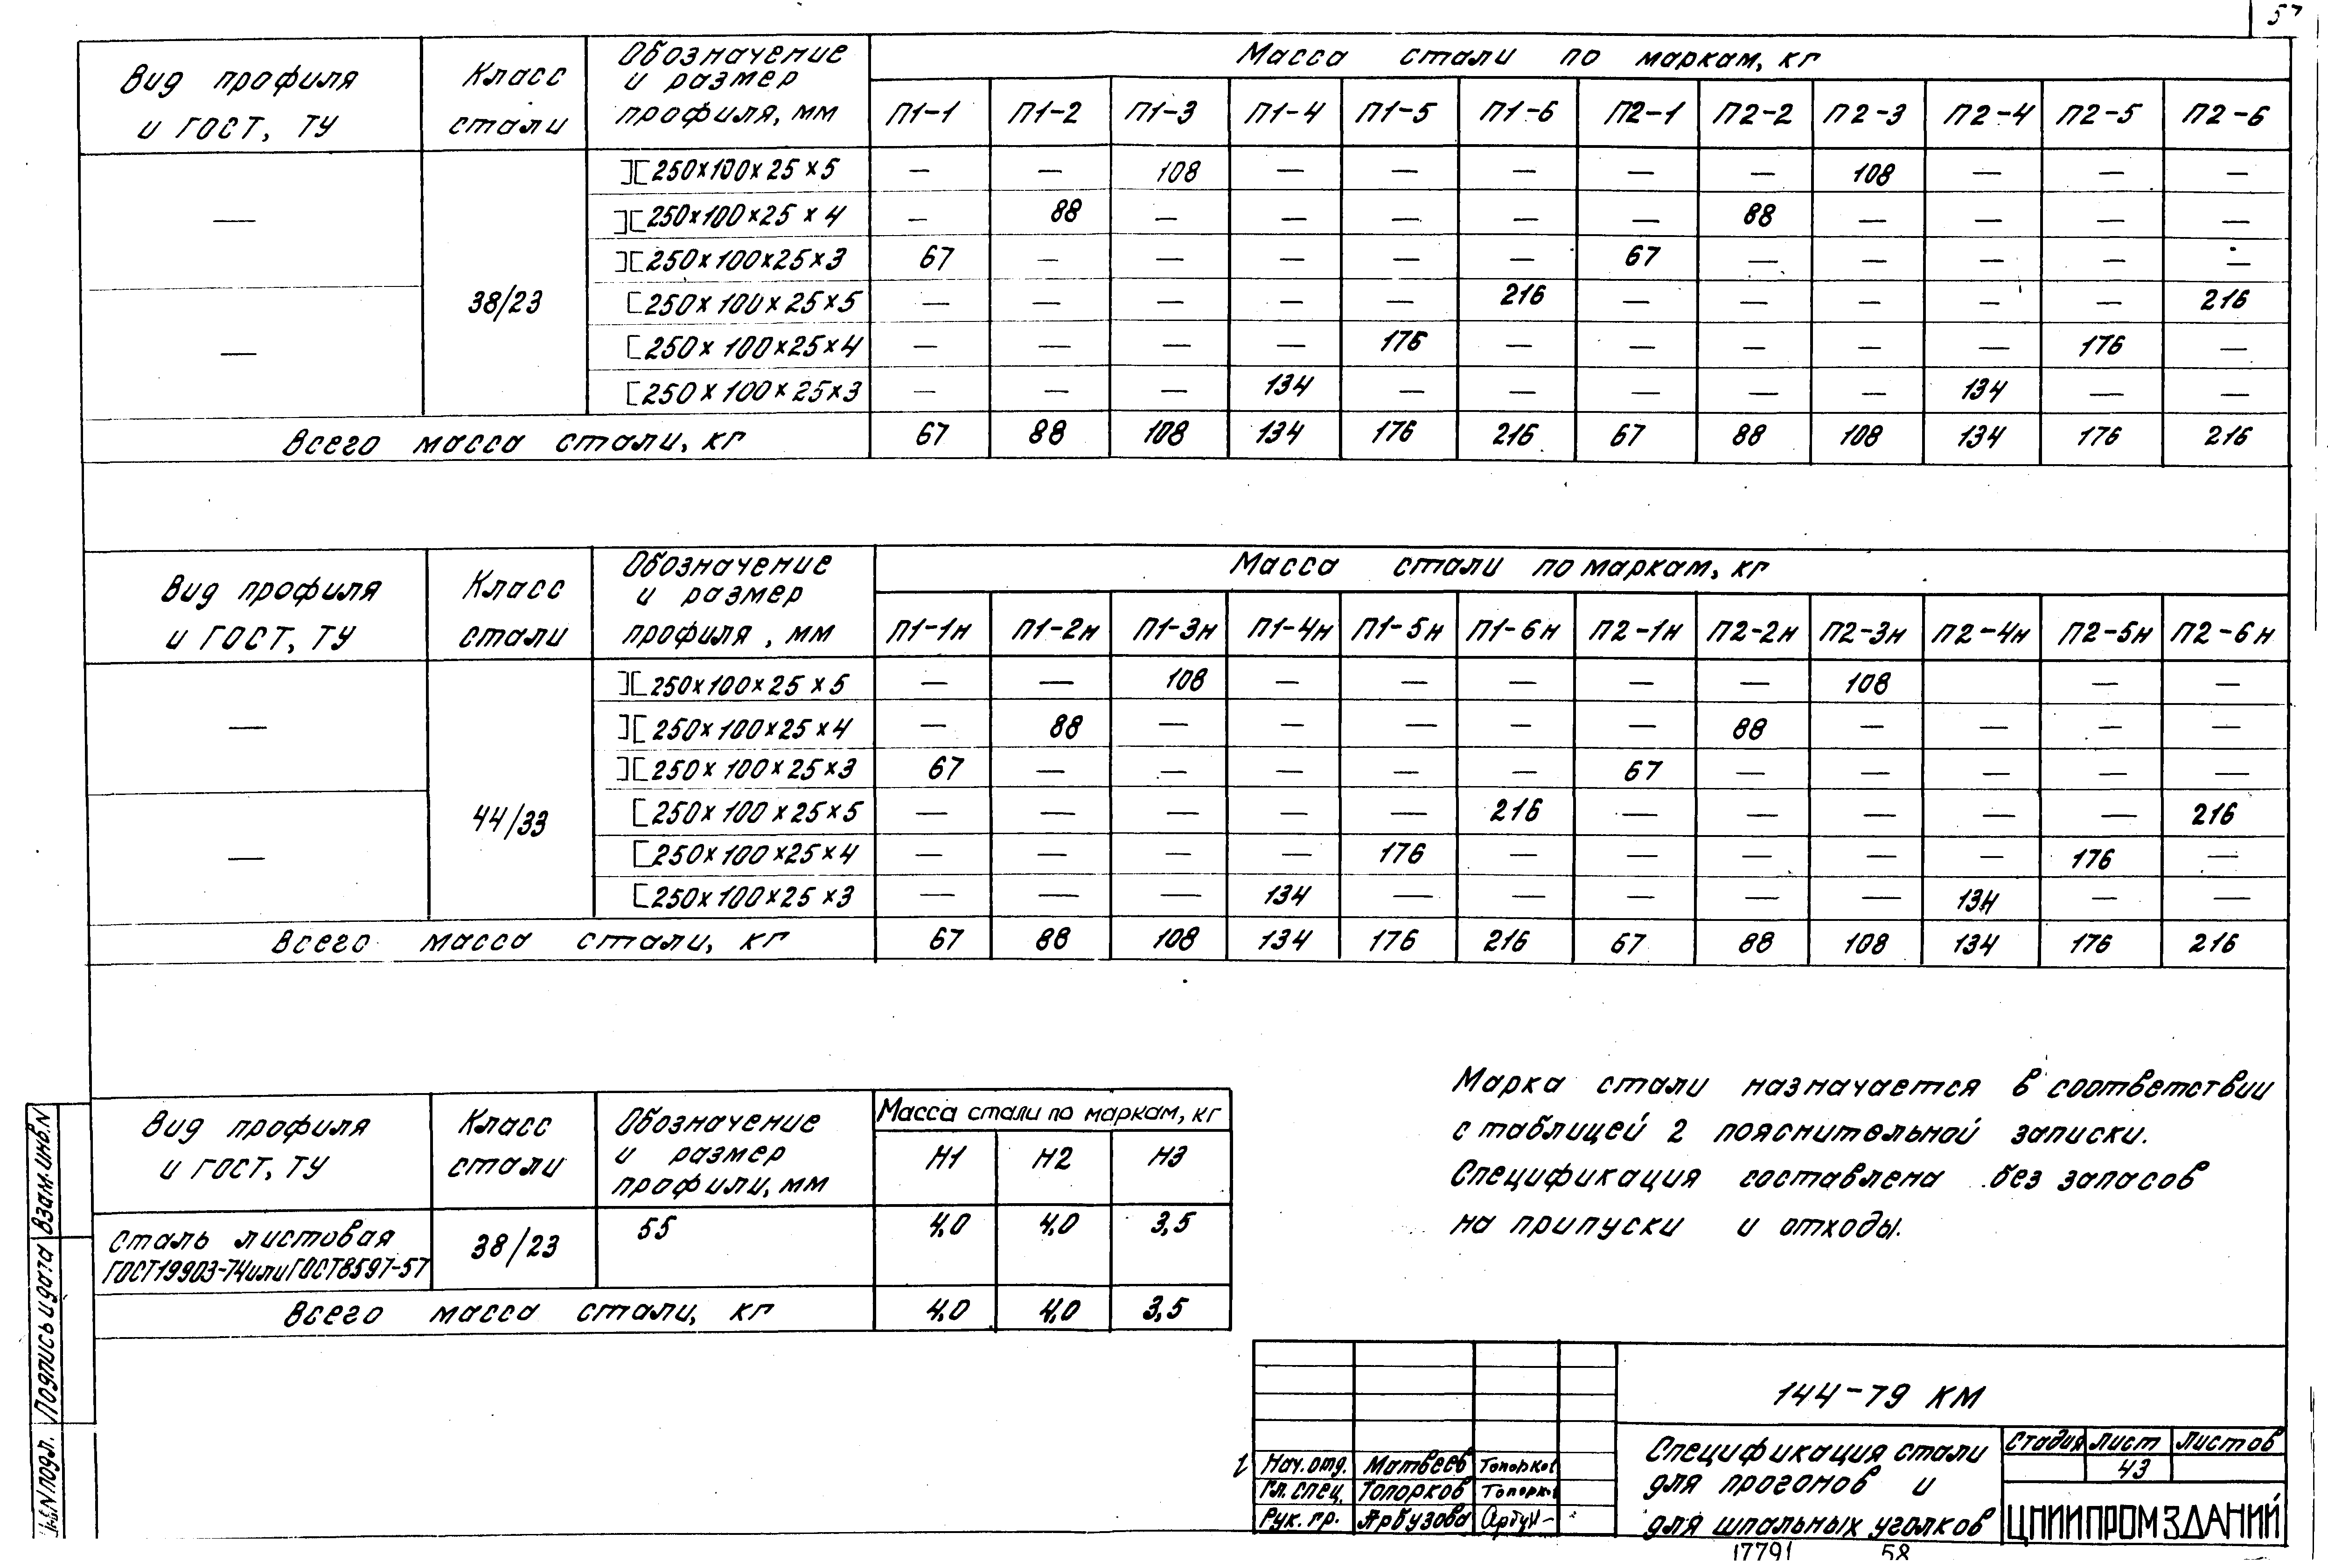 57
Вид профиля и ГОСТ, ТУ | Класс стали | Обозначение и размер профиля, мм | Масса стали по маркам, кг
П1-1 | П1-2 | П1-3 | П1-4 | П1-5 | П1-6 | П2-1 | П2-2 | П2-3 | П2-4 | П2-5 | П2-6
— | 38/23 | ][ 250×100×25×5 | — | — | 108 | — | — | — | — | — | 108 | — | — | —
][ 250×100×25×4 | — | 88 | — | — | — | — | — | 88 | — | — | — | —
][ 250×100×25×3 | 67 | — | — | — | — | — | 67 | — | — | — | — | —
— | [ 250×100×25×5 | — | — | — | — | — | 216 | — | — | — | — | — | 216
[ 250×100×25×4 | — | — | — | — | 176 | — | — | — | — | — | 176 | —
[ 250×100×25×3 | — | — | — | 134 | — | — | — | — | — | 134 | — | —
Всего масса стали, кг | 67 | 88 | 108 | 134 | 176 | 216 | 67 | 88 | 108 | 134 | 176 | 216
Вид профиля и ГОСТ, ТУ | Класс стали | Обозначение и размер профиля, мм | Масса стали по маркам, кг
П1-1н | П1-2н | П1-3н | П1-4н | П1-5н | П1-6н | П2-1н | П2-2н | П2-3н | П2-4н | П2-5н | П2-6н
— | 44/33 | ][ 250×100×25×5 | — | — | 108 | — | — | — | — | — | 108 | | — | —
][ 250×100×25×4 | — | 88 | — | — | — | — | — | 88 | — | — | — | —
][ 250×100×25×3 | 67 | — | — | — | — | — | 67 | — | — | — | — | —
— | [ 250×100×25×5 | — | — | — | — | — | 216 | — | — | — | — | — | 216
[ 250×100×25×4 | — | — | — | — | 176 | — | — | — | — | — | 176 | —
[ 250×100×25×3 | — | — | — | 134 | — | — | — | — | — | 134 | — | —
Всего масса стали, кг | 67 | 88 | 108 | 134 | 176 | 216 | 67 | 88 | 108 | 134 | 176 | 216
Вид профиля и ГОСТ, ТУ | Класс стали | Обозначение и размер профили, мм | Масса стали по маркам, кг
Н1 | Н2 | Н3
Сталь листовая ГОСТ19903-74 или ГОСТ8597-57 | 38/23 | δ5 | 4,0 | 4,0 | 3,5
Всего масса стали, кг | 4,0 | 4,0 | 3,5
Марка стали назначается в соответствии
с таблицей 2 пояснительной записки.
Спецификация составлена без запасов
на припуски и отходы.
Инв.N подл. Подпись и дата Взам.инв.N
144-79 КМ
Нач.отд. Матвеев
Гл. спец. Топорков
Рук. гр. Арбузова
Спецификация стали
для прогонов и
для шпальных уголков
Стадия Лист Листов
43
ЦНИИПРОМЗДАНИЙ
17791 58